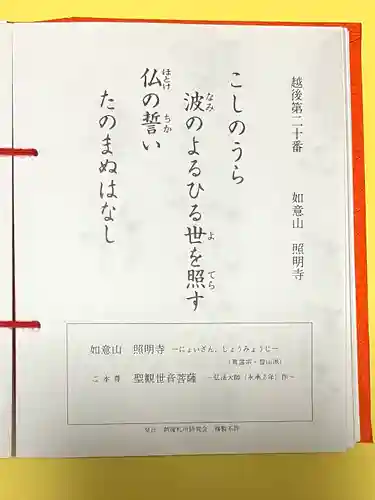 越後第二十番　如意山　照明寺
こしのうら
波のよるひる世を照す
なみ
よ
てら
仏の誓い
ほとけ
ちか
たのまぬはなし
如意山　照明寺 ―にょいざん、しょうみょうじ―
(真言宗・豊山派)
ご本尊　聖観世音菩薩 ―弘法大師
作―